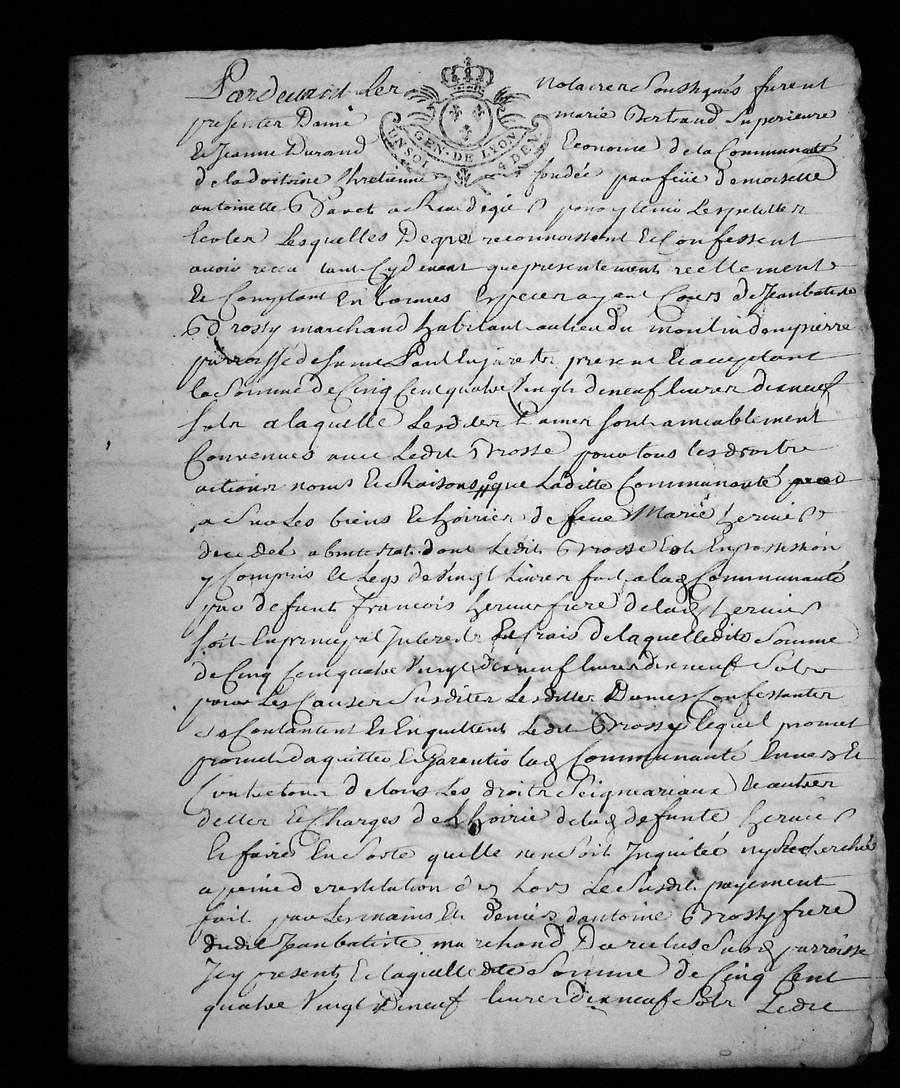 Pardevant Les notaires Soussignés furent
presentes Dame marie Bertrand Superieure
Et Jeanne Durand Econome de la Communauté
GEN. DE LYON
UN SOL 4 DEN.
de la doctrine Chretienne fondée par feüe demoiselle
antoinette les petittes
Ecoles Lesquelles De gré reconnoissent Et Confessent
avoir receu tant Cydevant que presentement reellement
Et Comptant En bonnes Especes ayant Cours de Jean batiste
Brossy marchand habitant au lieu du moulin dompierre
parroisse de Saint present Et acceptant
la Somme de Cinq Cent quatre Vingt dixneuf livres dixneuf
Sols a laquelle Lesdites Dames Sont amiablement
Convenues avec Ledit Brosse pour tous les droits
actions noms Et Raisons que Laditte Communauté
a Sur Les biens Et hoiries de feue Marie hernie
decedée abintestat dont Ledit Brosse Est En possession
y Compris Le Legs de Vingt Livres fait a lad Communauté
par defunt francois frere de lad
Soit En principal Interests Et frais de laquelledite Somme
de Cinq Cent quatre Vingt dixneuf livres dixneuf Sols
pour Les Causes Susdites Lesdittes Dames Confessantes
Se Contentent Et En quittent Ledit Brossy Lequel promet
promet d'aquitter Et Garentir lad Communauté Envers Et
Contre tous de tous Les droits Seigneuriaux Et autres
dettes Et Charges de L'hoirie de lad defunte
Et faire En Sorte quelle n'en Soit Inquietée ny Recherchée
a peine d restitution des Lors Le Susdit payement
fait par Les mains Et deniers d'antoine Brossy frere
dudit Jean batiste marchand Susd parroisse
Icy present Et laquelledite Somme de Cinq Cent
quatre Vingt Dixneuf livres dixneuf Sols Ledit